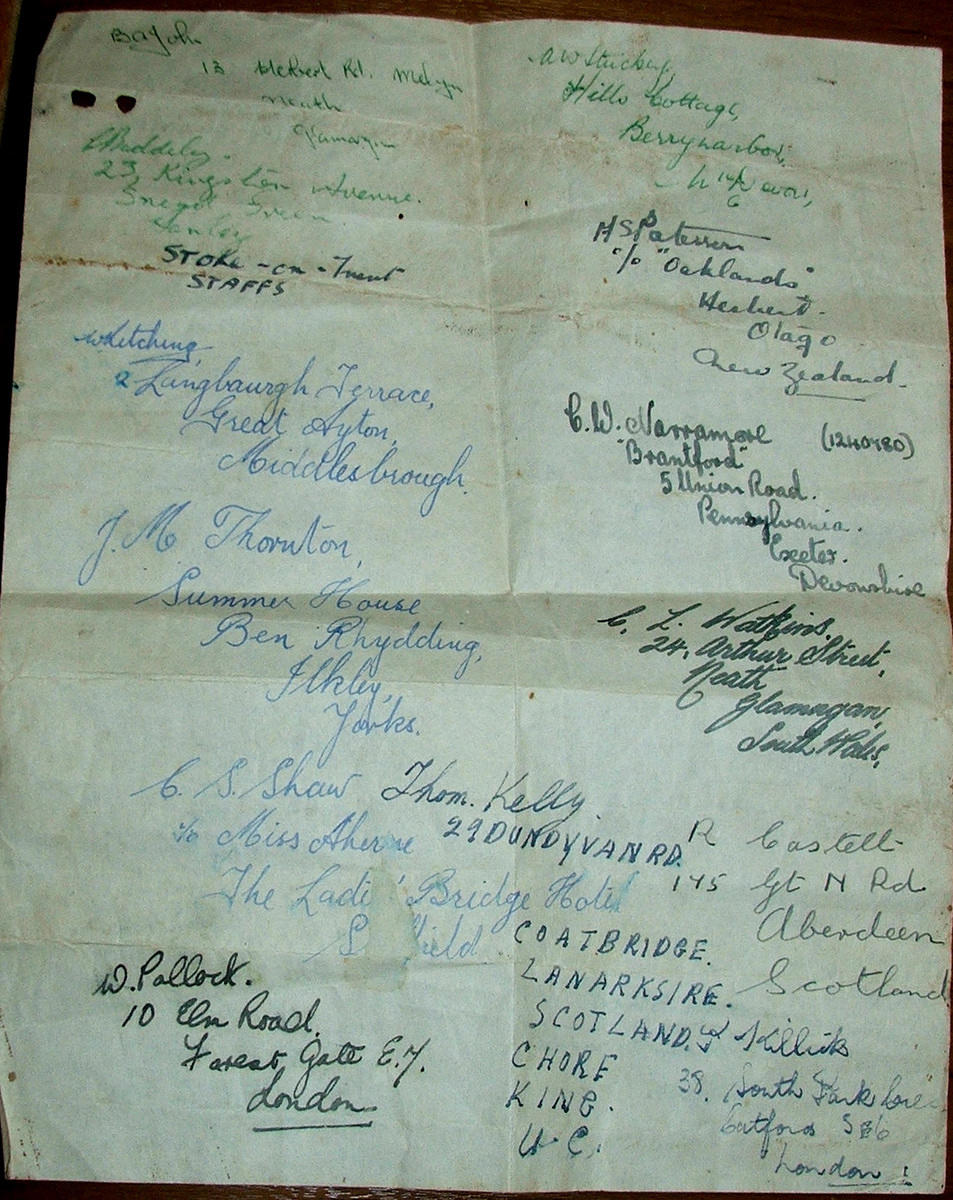 13 Herbert Rd. Melyn
Neath
23 Kingston Avenue.
Green
Hanley
STOKE-on-Trent
STAFFS
W Kitching,
2 Langbaurgh Terrace,
Great Ayton,
Middlesbrough.
J. M Thornton,
Summer House
Ben Rhydding,
Ilkley,
Yorks.
C. S. Shaw
c/o Miss Aherne
The Ladi ' Bridge Hotel
S field
W. Pollock.
10 Elm Road.
Forest Gate E.7.
London
Hills Cottage,
Berrynarbor,
HS Paterson
c/o "Oaklands"
Herbert.
Otago
New Zealand.
C. W. Narramore (1240980)
"Brantford"
5 Union Road.
Pennsylvania.
Exeter.
Devonshire
C. L. Watkins.
24, Arthur Street,
Neath
Glamorgan,
South Wales,
Thom. Kelly
29 DUNDYVAN RD.
COATBRIDGE.
LANARKSIRE.
SCOTLAND.
CHORE
KING.
U.C.
R Castell
175 Gt N Rd
Aberdeen
Scotland
Killick
38, South Park
Catford SE6
London!